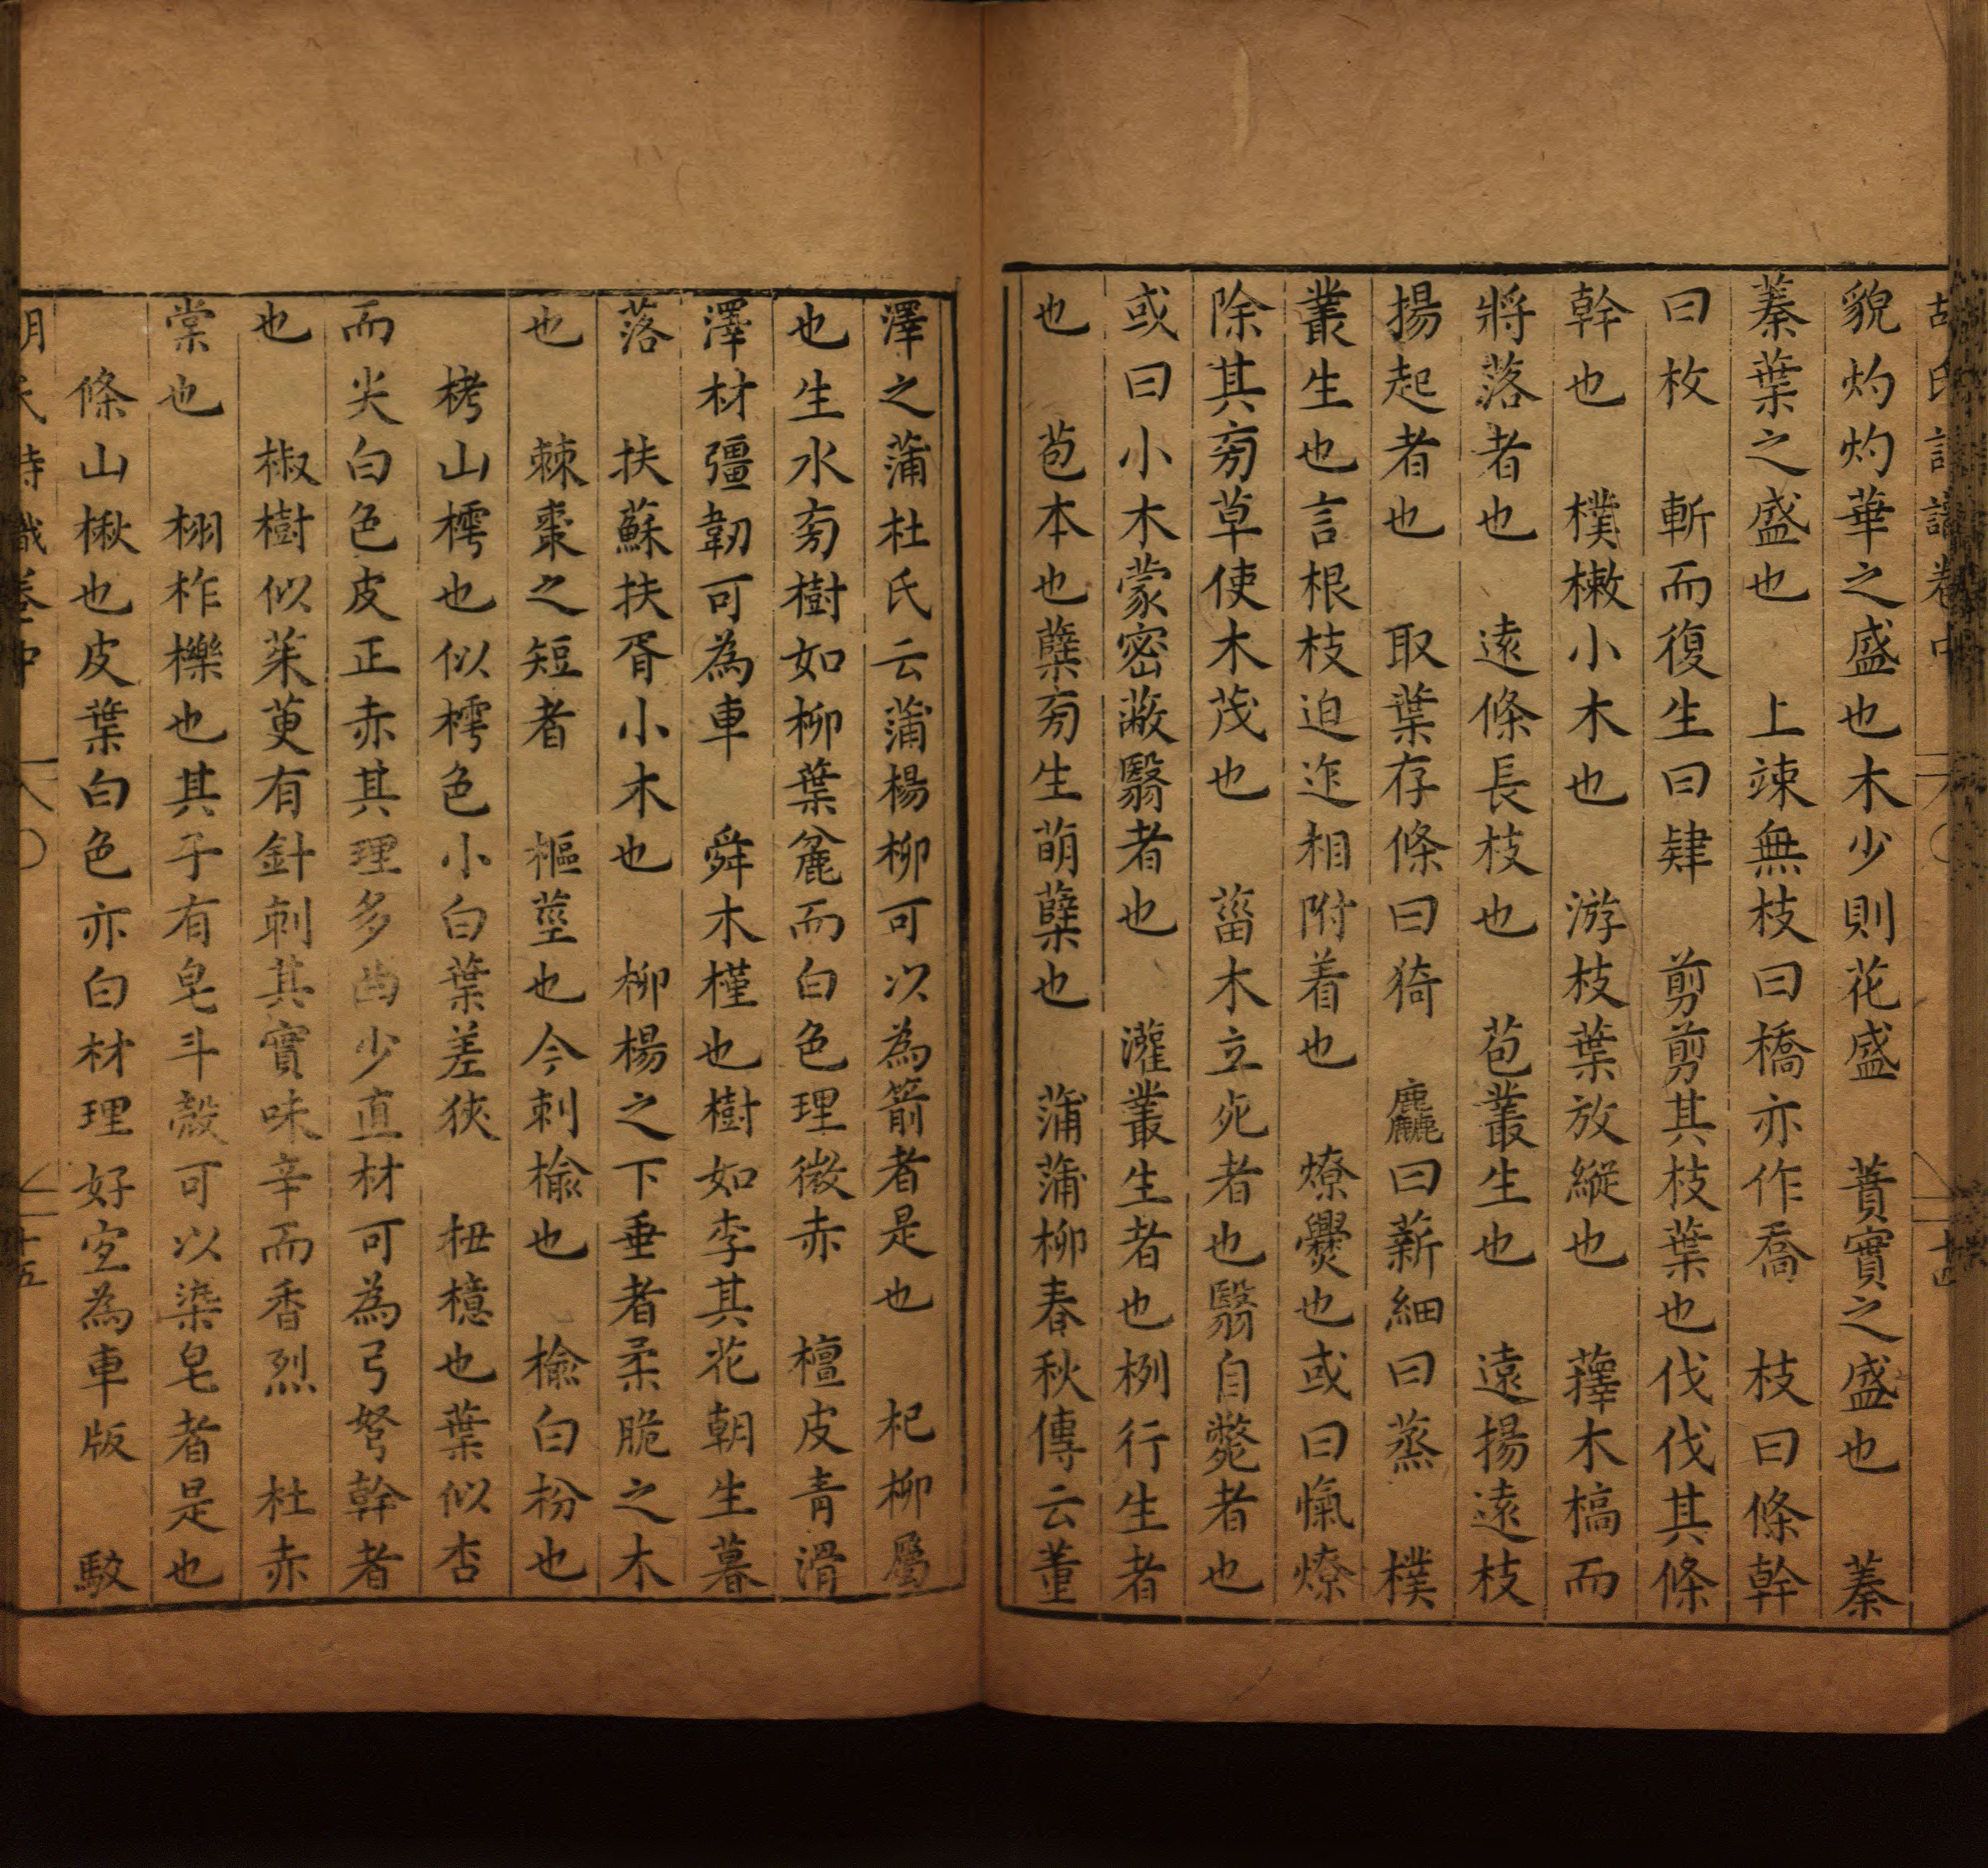 貌灼灼華之盛也木少則花盛　蕡實之盛也　蓁
蓁葉之盛也　上竦無枝曰橋亦作喬　枝曰條幹
曰枚　斬而復生曰肄　剪剪其枝葉也伐伐其條
幹也　樸樕小木也　游枝葉放縱也　蘀木槁而
將落者也　遠條長枝也　苞叢生也　遠揚遠枝
揚起者也　取葉存條曰猗　麤曰薪細曰蒸　樸
叢生也言根枝迫迮相附着也　燎爨也或曰熂燎
除其旁草使木茂也　菑木立死者也翳自斃者也
或曰小木蒙密蔽翳者也　灌叢生者也栵行生者
也　苞本也蘖旁生萌蘖也　蒲蒲柳春秋傳云董
澤之蒲杜氏云蒲楊柳可以為箭者是也　杞柳屬
也生水旁樹如柳葉麄而白色理微赤　檀皮青滑
澤材彊韌可為車　舜木槿也樹如李其花朝生暮
落　扶蘇扶胥小木也　柳楊之下垂者柔脆之木
也　棘棗之短者　樞莖也今刺榆也　榆白枌也
栲山樗也似樗色小白葉差狹　杻檍也葉似杏
而尖白色皮正赤其理多曲少直材可為弓弩幹者
也　椒樹似茱萸有針刺其實味辛而香烈　杜赤
棠也　栩柞櫟也其子有皂斗殼可以染皂者是也
條山楸也皮葉白色亦白材理好宜為車版　駮
十五